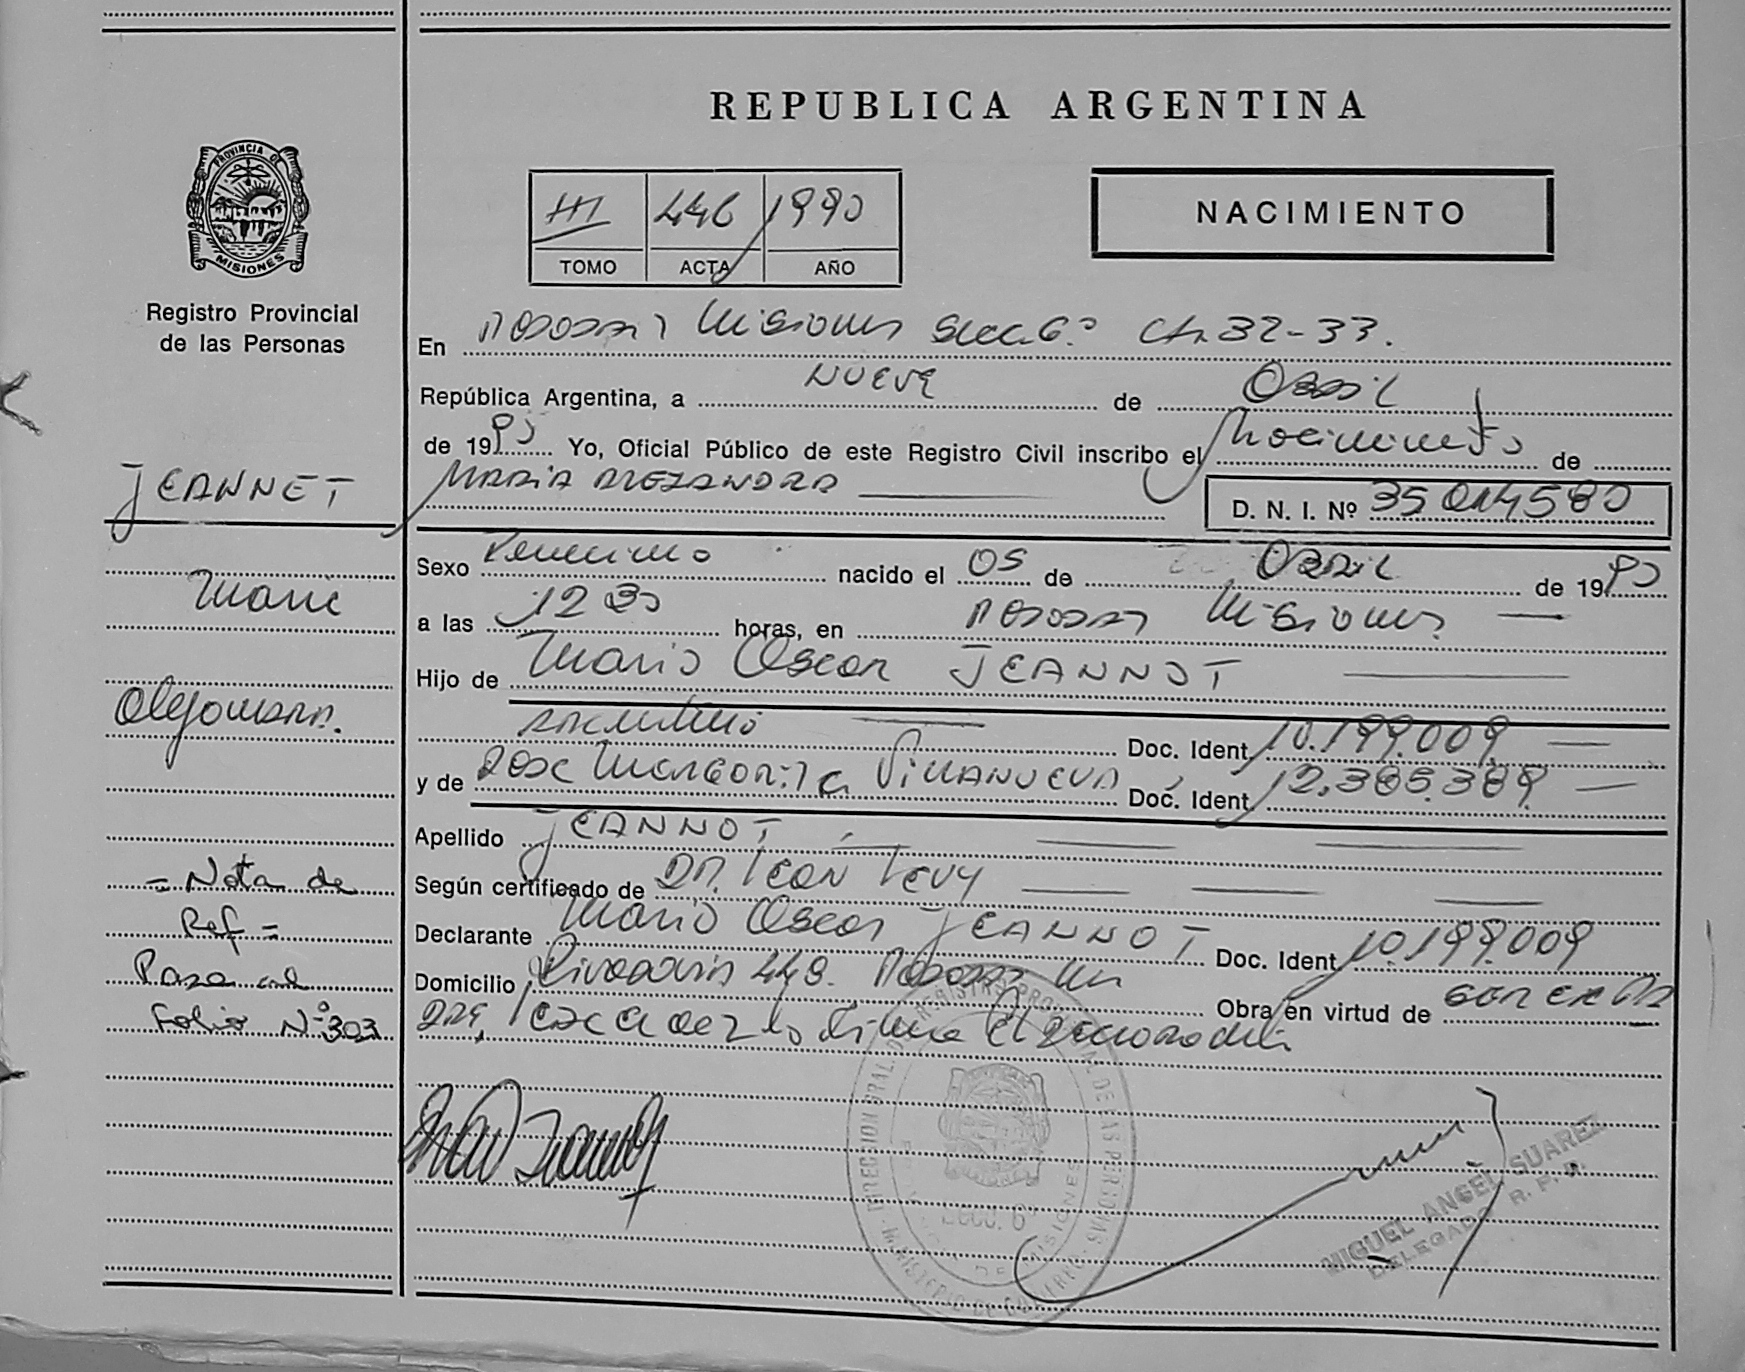 REPUBLICA ARGENTINA
PROVINCIA DE
MISIONES
Registro Provincial
de las Personas
III 446 1990
TOMO ACTA AÑO
NACIMIENTO
En Posadas Misiones Secc. 6º Ch. 32-33.
República Argentina, a NUEVE de Abril
de 1990 Yo, Oficial Público de este Registro Civil inscribo el Nacimiento de
MARIA ALEJANDRA
D. N. I. Nº 35.014.580
JEANNET
Maria
Alejandra.
Sexo Femenino nacido el 05 de Abril de 1990
a las 12 30 horas, en Posadas Misiones
Hijo de Mario Oscar JEANNOT
argentino Doc. Ident 10.199.009
y de Rosa Margarita VILLANUEVA Doc. Ident 12.385.389
Apellido JEANNOT
Según certificado de DR. LEON LEVY
Declarante Mario Oscar JEANNOT Doc. Ident 10.199.009
Domicilio Rivadavia 448. Posadas Obra en virtud de
= Nota de
Ref =
Pasa al
Folio Nº 303
DIRECCION GRAL. DE REGISTRO PROVINCIAL DE LAS PERSONAS
MINISTERIO DE GOBIERNO
SECC. 6º
MISIONES
MIGUEL ANGEL SUAREZ
DELEGADO R. P. P.